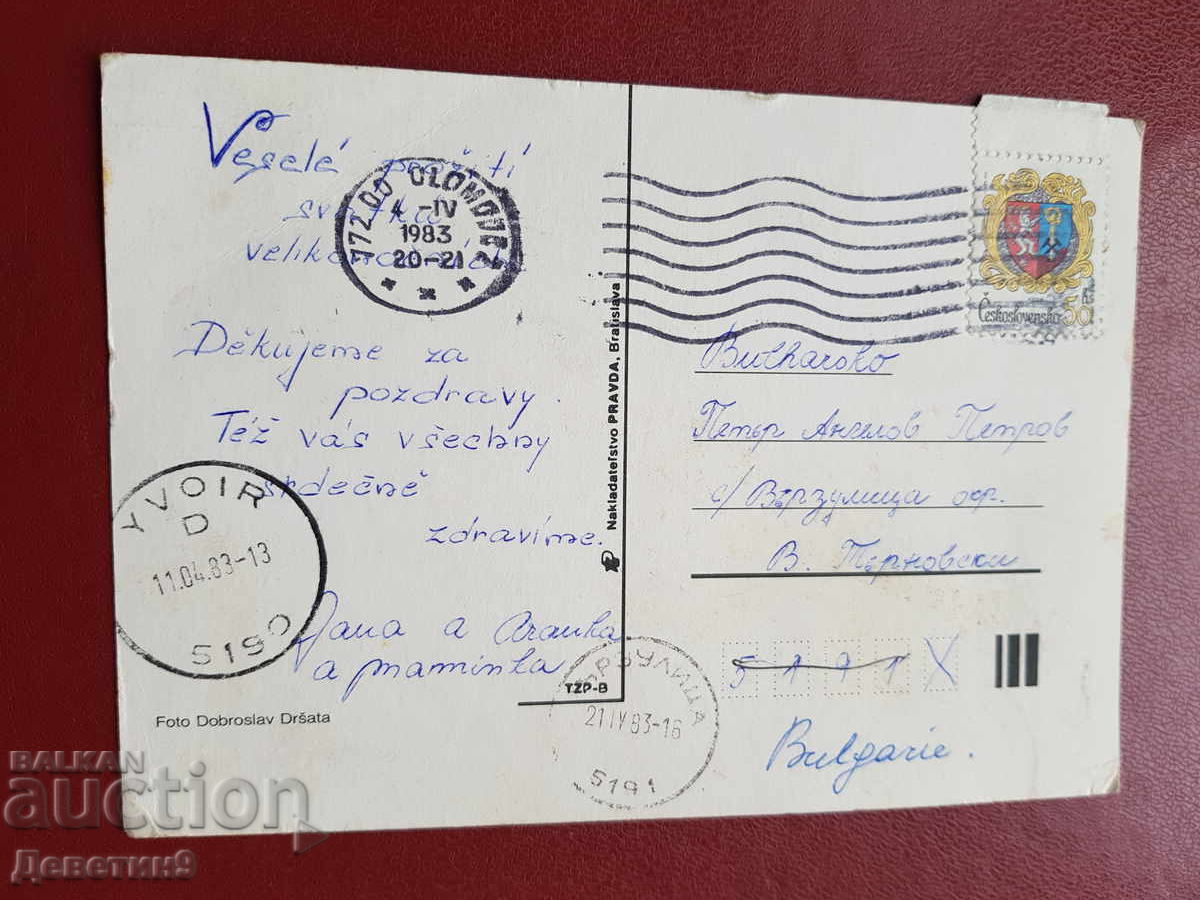 Veselé prožití
svátků
velikonočních
Děkujeme za
pozdravy.
Též vás všechny
srdečně
zdravíme.
Jana a Aranka
a maminka
Foto Dobroslav Dršata
772 00 OLOMOUC
4.-IV
1983
20-21
YVOIR
D
11.04.83-13
5190
Nakladateľstvo PRAVDA, Bratislava
TZP-B
Československo
50
Bulharsko
Петър Ангелов Петров
с/ Върzулица окр.
В. Търновски
5191 X
ЪРЗУЛИЦА
21IV83-16
5191
Bulgarie.
BALKAN
auction
Деветин9